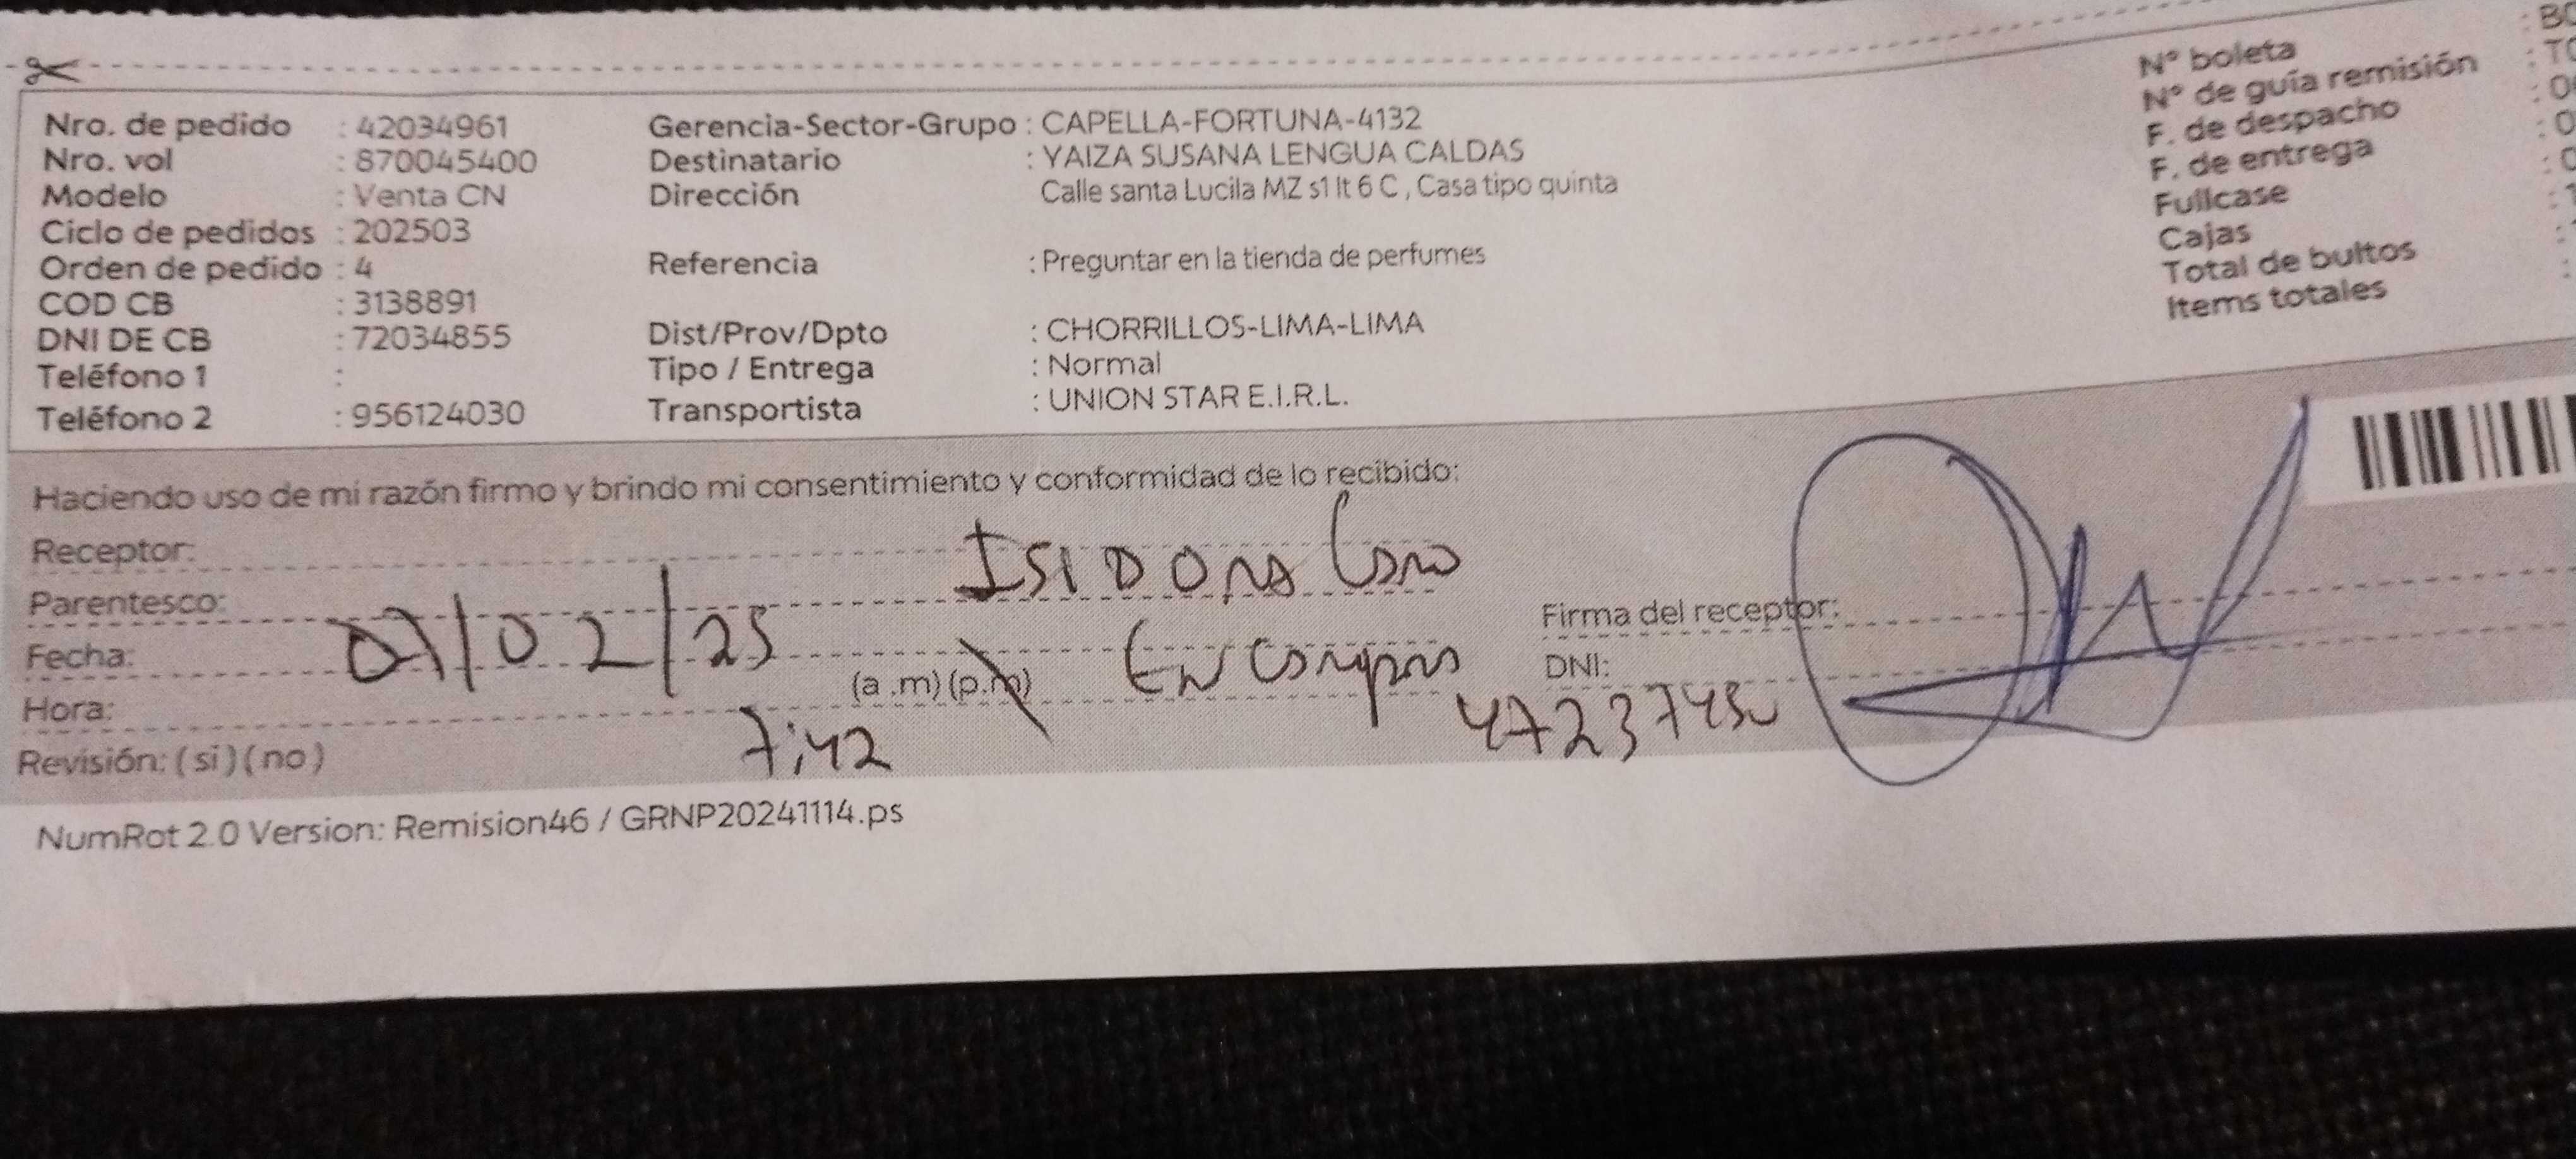 Nro. de pedido : 42034961
Nro. vol : 870045400
Modelo : Venta CN
Ciclo de pedidos : 202503
Orden de pedido : 4
COD CB : 3138891
DNI DE CB : 72034855
Teléfono 1 :
Teléfono 2 : 956124030
Gerencia-Sector-Grupo : CAPELLA-FORTUNA-4132
Destinatario : YAIZA SUSANA LENGUA CALDAS
Dirección Calle santa Lucila MZ s1 lt 6 C , Casa tipo quinta
Referencia : Preguntar en la tienda de perfumes
Dist/Prov/Dpto : CHORRILLOS-LIMA-LIMA
Tipo / Entrega : Normal
Transportista : UNION STAR E.I.R.L.
N° boleta
N° de guía remisión
F. de despacho
F. de entrega
Fullcase
Cajas
Total de bultos
Items totales
Haciendo uso de mi razón firmo y brindo mi consentimiento y conformidad de lo recibido:
Receptor: ISIDORA
Parentesco:
Fecha: 07/02/25
Hora: 7:42 (a .m) (p.m)
En
Revisión: ( si ) ( no )
Firma del receptor:
DNI:
NumRot 2.0 Version: Remision46 / GRNP20241114.ps